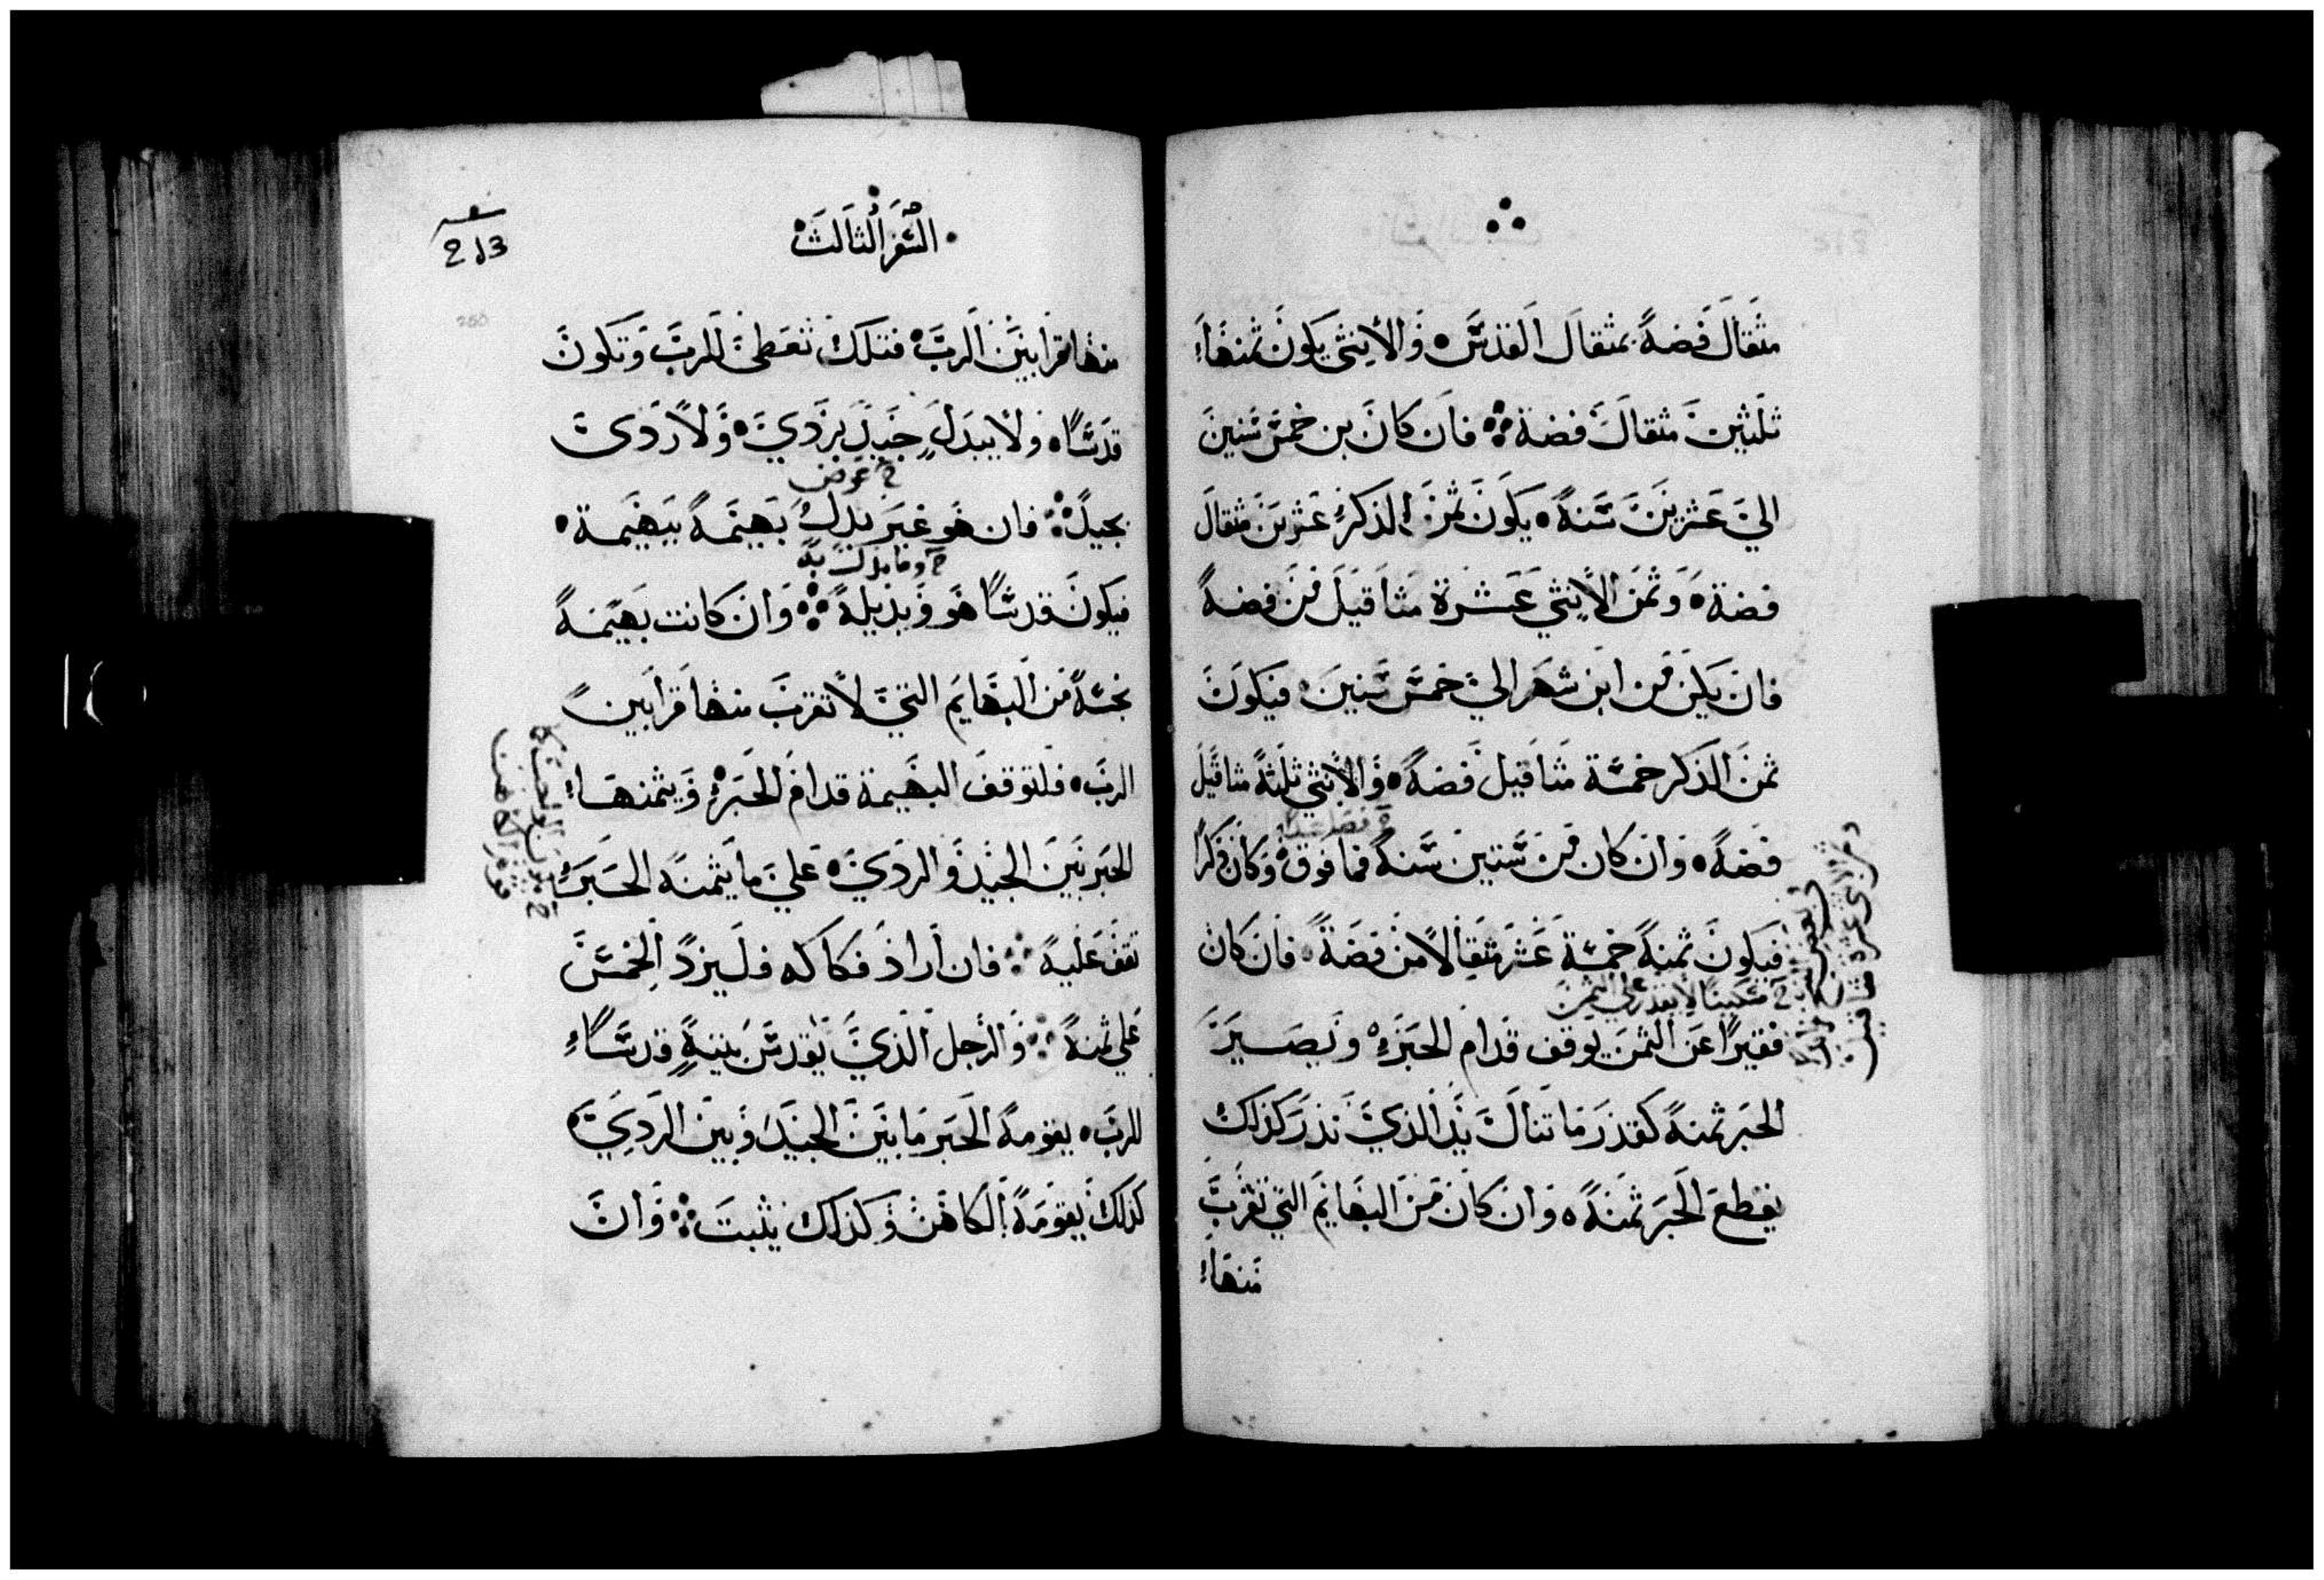 مثقال فضة بمثقال القدس والانثي يكون ثمنها
ثلثين مثقال فضة فان كان بن خمس سنين
الي عشرين سنة يكون ثمن الذكر عشرين مثقال
فضة وثمن الانثي عشرة مثاقيل من فضة
فان يكن من ابن شهر الي خمس سنين فيكون
ثمن الذكر خمسة مثاقيل فضة والانثي ثلثة مثاقيل
فضة وان كان من ستين سنة فما فوق وكان ذكرا
فيكون ثمنه خمسة عشر مثقالا من فضة فان كان
مسكينا لا يقدر علي الثمن
فقيرا عن الثمن يوقف قدام الحبر ويصير
الحبر ثمنه كقدر ما تنال يد الذي نذر كذلك
يقطع الحبر ثمنه وان كان من البهايم التي تقرب
منها
السفر الثالث
منها قرابين الرب فتلك تعطي للرب وتكون
قدسا ولا يبدل جيد بردي ولا ردي
عوض
بجيد فان هو غير بدل بهيمة ببهيمة
وما بدلت به
فيكون قدسا هو وبديله وان كانت بهيمة
نجسة من البهايم التي لا تقرب منها قرابين
الرب فلتوقف البهيمة قدام الحبر ويثمنها
الحبر بين الجيد والردي علي ما يثمنه الحبر
تقف عليه فان اراد فكاكه فليزد الخمس
علي ثمنه والرجل الذي يقدس بيته قدسا
للرب يقومه الحبر ما بين الجيد وبين الردي
كذلك يقومه الكاهن وكذلك يثبت وان